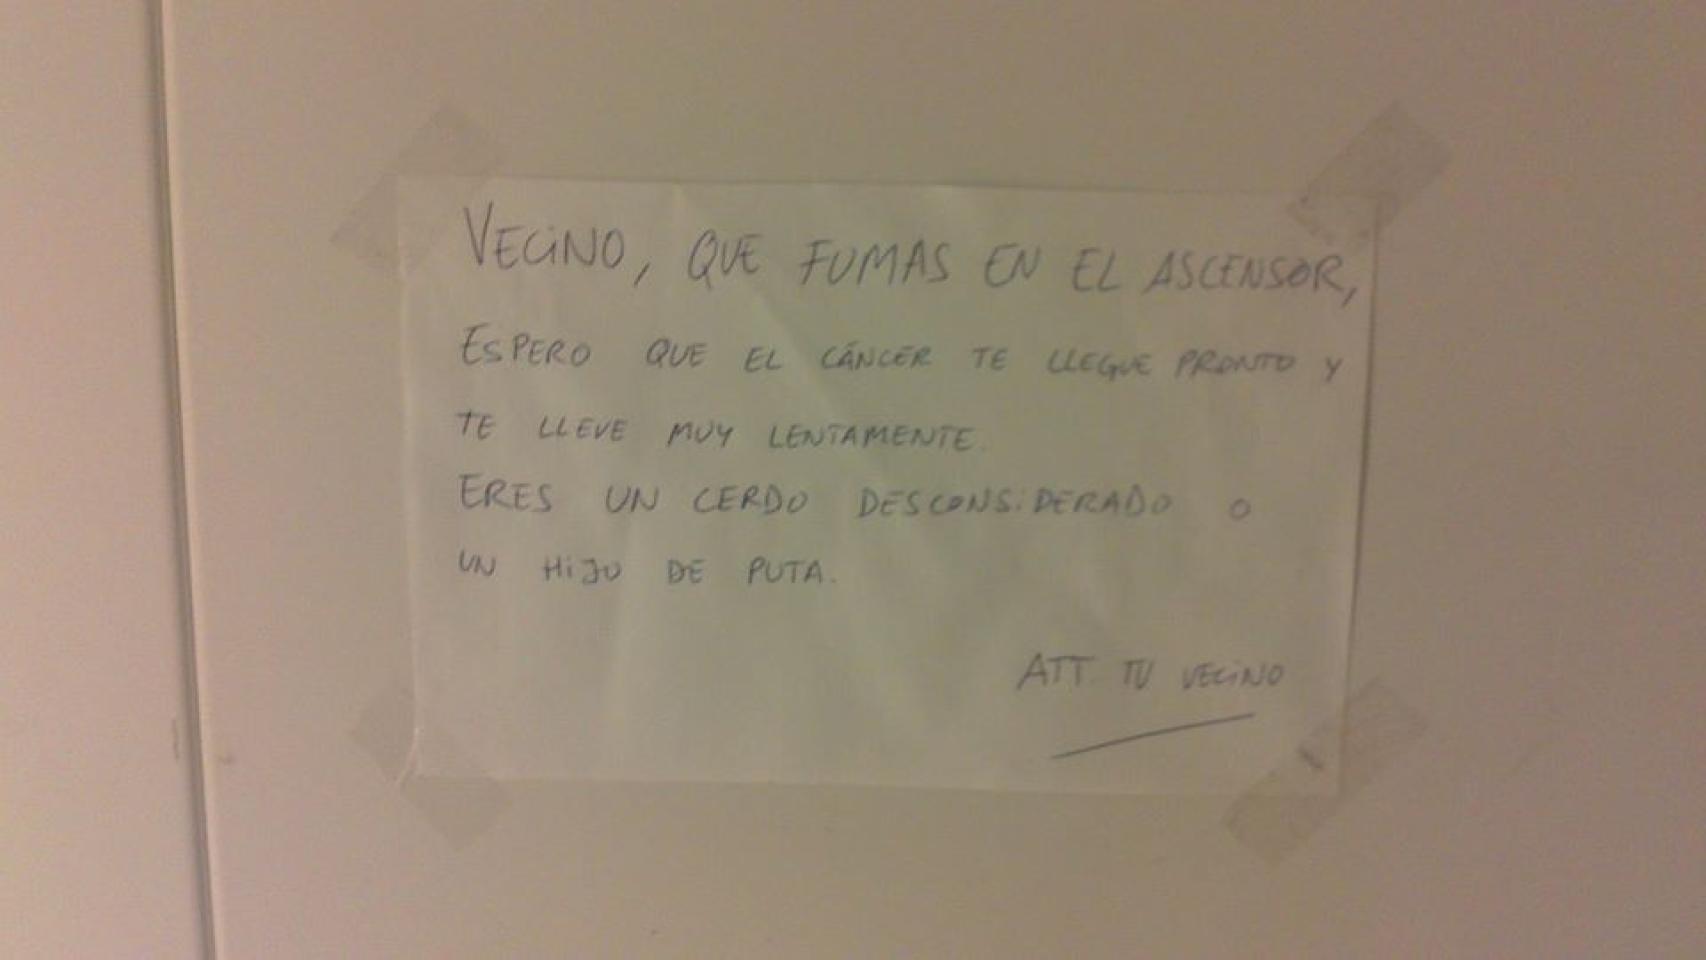 VECINO, QUE FUMAS EN EL ASCENSOR,
ESPERO QUE EL CÁNCER TE LLEGUE PRONTO Y
TE LLEVE MUY LENTAMENTE.
ERES UN CERDO DESCONSiDERADO O
UN HiJO DE PUTA.
ATT. TU VECiNO